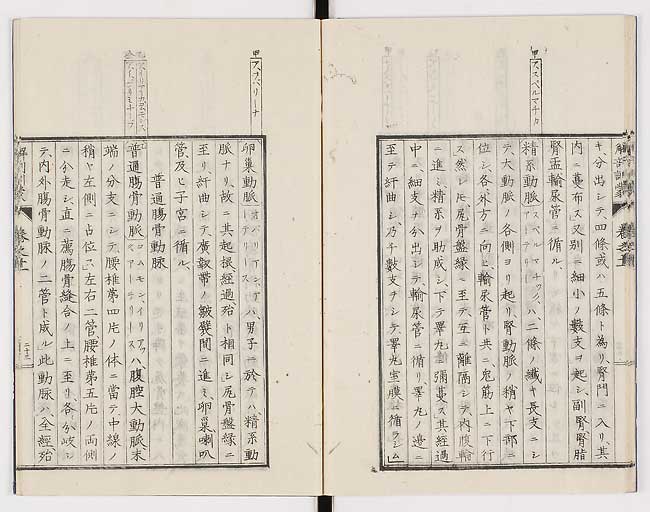 甲 ススペルマチカ
キ分出シテ、四條或ハ五條ト為リ、腎門ニ入リ、其
内ニ蔓布ス、又別ニ細小ノ數支ヲ起シ、副腎腎脂
腎盂輸尿管ニ循ル、
精系動脈スペルマチック、アーテリースハ二條ノ纖ヤ長支ニシ
テ、大動脈ノ各側ヨリ起リ、腎動脈ノ稍ヤ下部ニ
位シ、各外方ニ向ヒ、輸尿管ト共ニ鬼筋上ニ下行
ス、然シドモ尻骨盤縁ニ至テ、互ニ離隔シテ、内腹輸
ニ進ミ、精系ヲ助成シ、下テ睪丸ニ彌蔓ス、其經過
中ニ、細支ヲ分出シテ、輸尿管ニ循リ、睪丸ノ邉ニ
至テ紆曲シ、乃チ數支ヲシテ睪丸室膜ニ循ラシム、
解剖訓蒙
甲 ヲバリーナ
卵巣動脈オバリアン、アーテリースハ、男子ニ於テハ、精系動
脈ナリ、故ニ其起根經過殆ト相同シ、尻骨盤縁ニ
至リ、紆曲シテ、廣靱帯ノ皺襞間ニ進ミ、卵巣喇叭
管、及ヒ子宮ニ循ル、
普通腸骨動脈
普通腸骨動脈コムモン、イリアック、アーテリースハ腹腔大動脈末
端ノ分支ニシテ、腰椎第四片ノ体ニ當テ、中線ノ
稍ヤ左側ニ占位ス、左右二管腰椎第五片ノ両側
ニ分走シ、直ニ薦腸骨縫合ノ上ニ至リ、各分岐シ
テ、内外腸骨動脈ノ二管ト成ル、此動脈ハ、全經殆